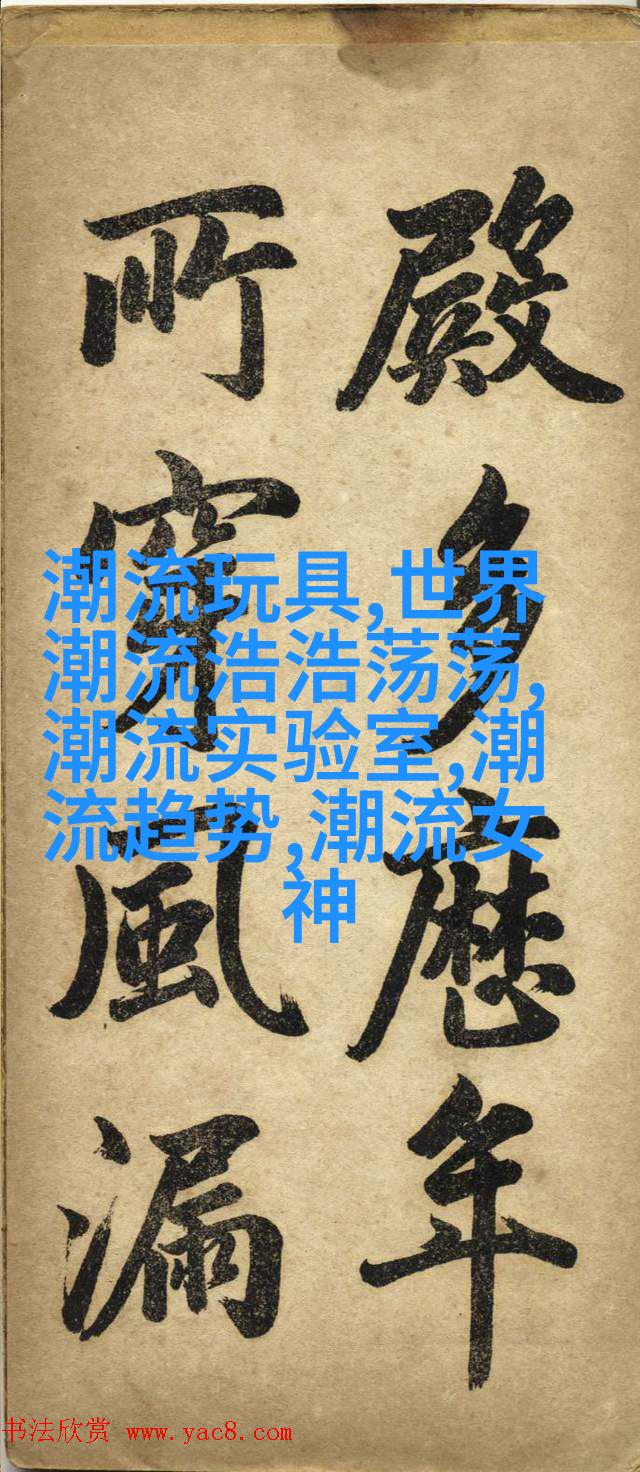 殿多歷年
所穿風漏
潮流玩具,世界
潮流浩浩荡荡,
潮流实验室,潮
流趋势,潮流女
神
书法欣赏 www.yac8.com